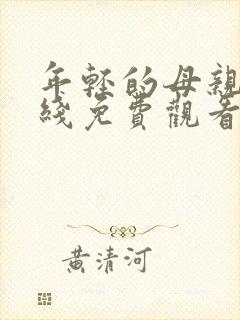 年轻的母親
綫免費觀看
黃清河